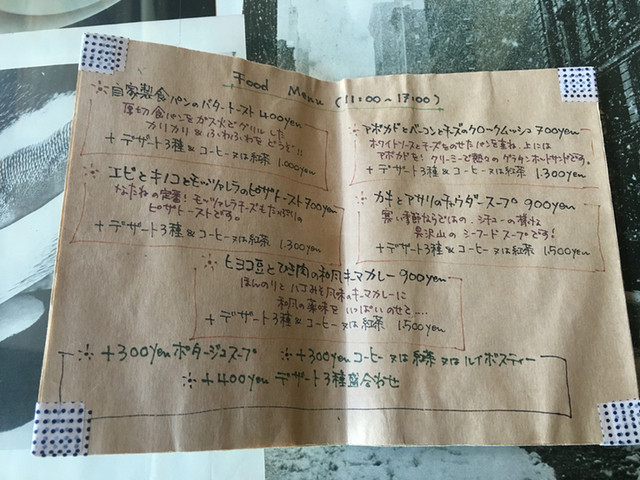 Food Menu (11:00~17:00)
自家製食パンのバタートースト 400yen
厚切食パンをガス火でグリルした
カリカリ&ふわふわをどうぞ!!
+デザート3種&コーヒー又は紅茶 1.000yen
エビとキノコとモッツァレラのピザトースト 700yen
なたねの定番!モッツァレラチーズもたっぷりの
ピザトーストです。
+デザート3種&コーヒー又は紅茶 1.300yen
アボカドとベーコンとチーズのクロークムッシュ 700yen
ホワイトソースとチーズをのせたパンを重ね、上には
アボカドを!クリーミーで熱々のグラタンホットサンドです。
+デザート3種&コーヒー又は紅茶 1.300yen
カキとアサリのチャウダースープ 900yen
寒い季節ならではの、シチューの様な
具沢山のシーフードスープです!
+デザート3種&コーヒー又は紅茶 1.500yen
ヒヨコ豆とひき肉の和風キーマカレー 900yen
ほんのりと八丁みそ風味のキーマカレーに
和風の薬味をいっぱいのせて....
+デザート3種&コーヒー又は紅茶 1.500yen
+300yen ポタージュスープ
+300yen コーヒー又は紅茶又はルイボスティー
+400yen デザート3種盛合わせ